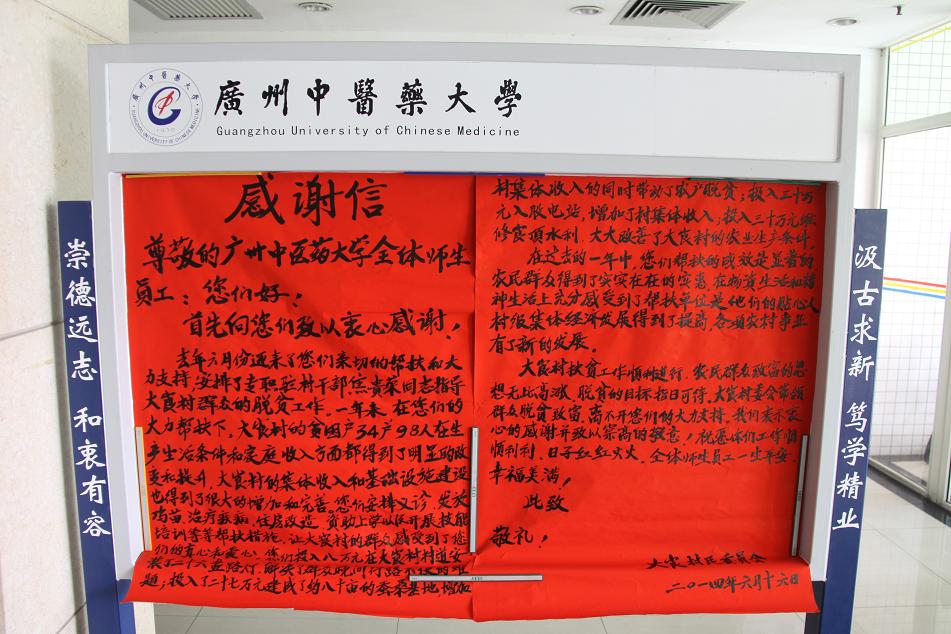 廣州中醫藥大學
Guangzhou University of Chinese Medicine
崇德远志 和衷有容
感谢信
尊敬的广州中医药大学全体师生
员工：您们好！
首先向您们致以衷心感谢！
去年六月份迎来了您们亲切的帮扶和大
力支持，安排了专职驻村干部 同志指导
大食村群众的脱贫工作。一年来，在您们的
大力帮扶下，大食村的贫困户34户98人在生
产生活条件和家庭收入方面都得到了明显的改
变和提升，大食村的集体收入和基础设施建设
也得到了很大的增加和完善。您们安排义诊、发放
鸡苗、治疗疾病、住房改造、资助上学以及开展技能
培训等等帮扶措施，让大食村的群众感受到了您
们的真心和爱心。您们投入八万元在大食村村道安
装了二十六盏路灯，解决了群众晚间行路不便的难
题；投入了二十七万元建成了约八十亩的蚕桑基地，增加
村集体收入的同时带动了农户脱贫；投入三十万
元入股电站，增加了村集体收入；投入三十万元
修食项水利，大大改善了大食村的农业生产条件。
在过去的一年中，您们帮扶的成效是显著的
农民群众得到了实实在在的实惠，在物资生活和精
神生活上充分感受到了帮扶单位是他们的贴心人
村级集体经济发展得到了提高，各项农村事业
有了新的发展。
大食村扶贫工作顺利进行，农民群众致富的思
想无比高涨，脱贫的目标指日可待，大食村委会带领
群众脱贫致富，离不开您们的大力支持。我们表示衷心
的感谢并致以崇高的敬意！祝愿你们工作顺
顺利利，日子红红火火，全体师生员工一生平安，
幸福美满！
此致
敬礼！
大食村民委员会
二〇一四年六月十六日
汲古求新 笃学精业